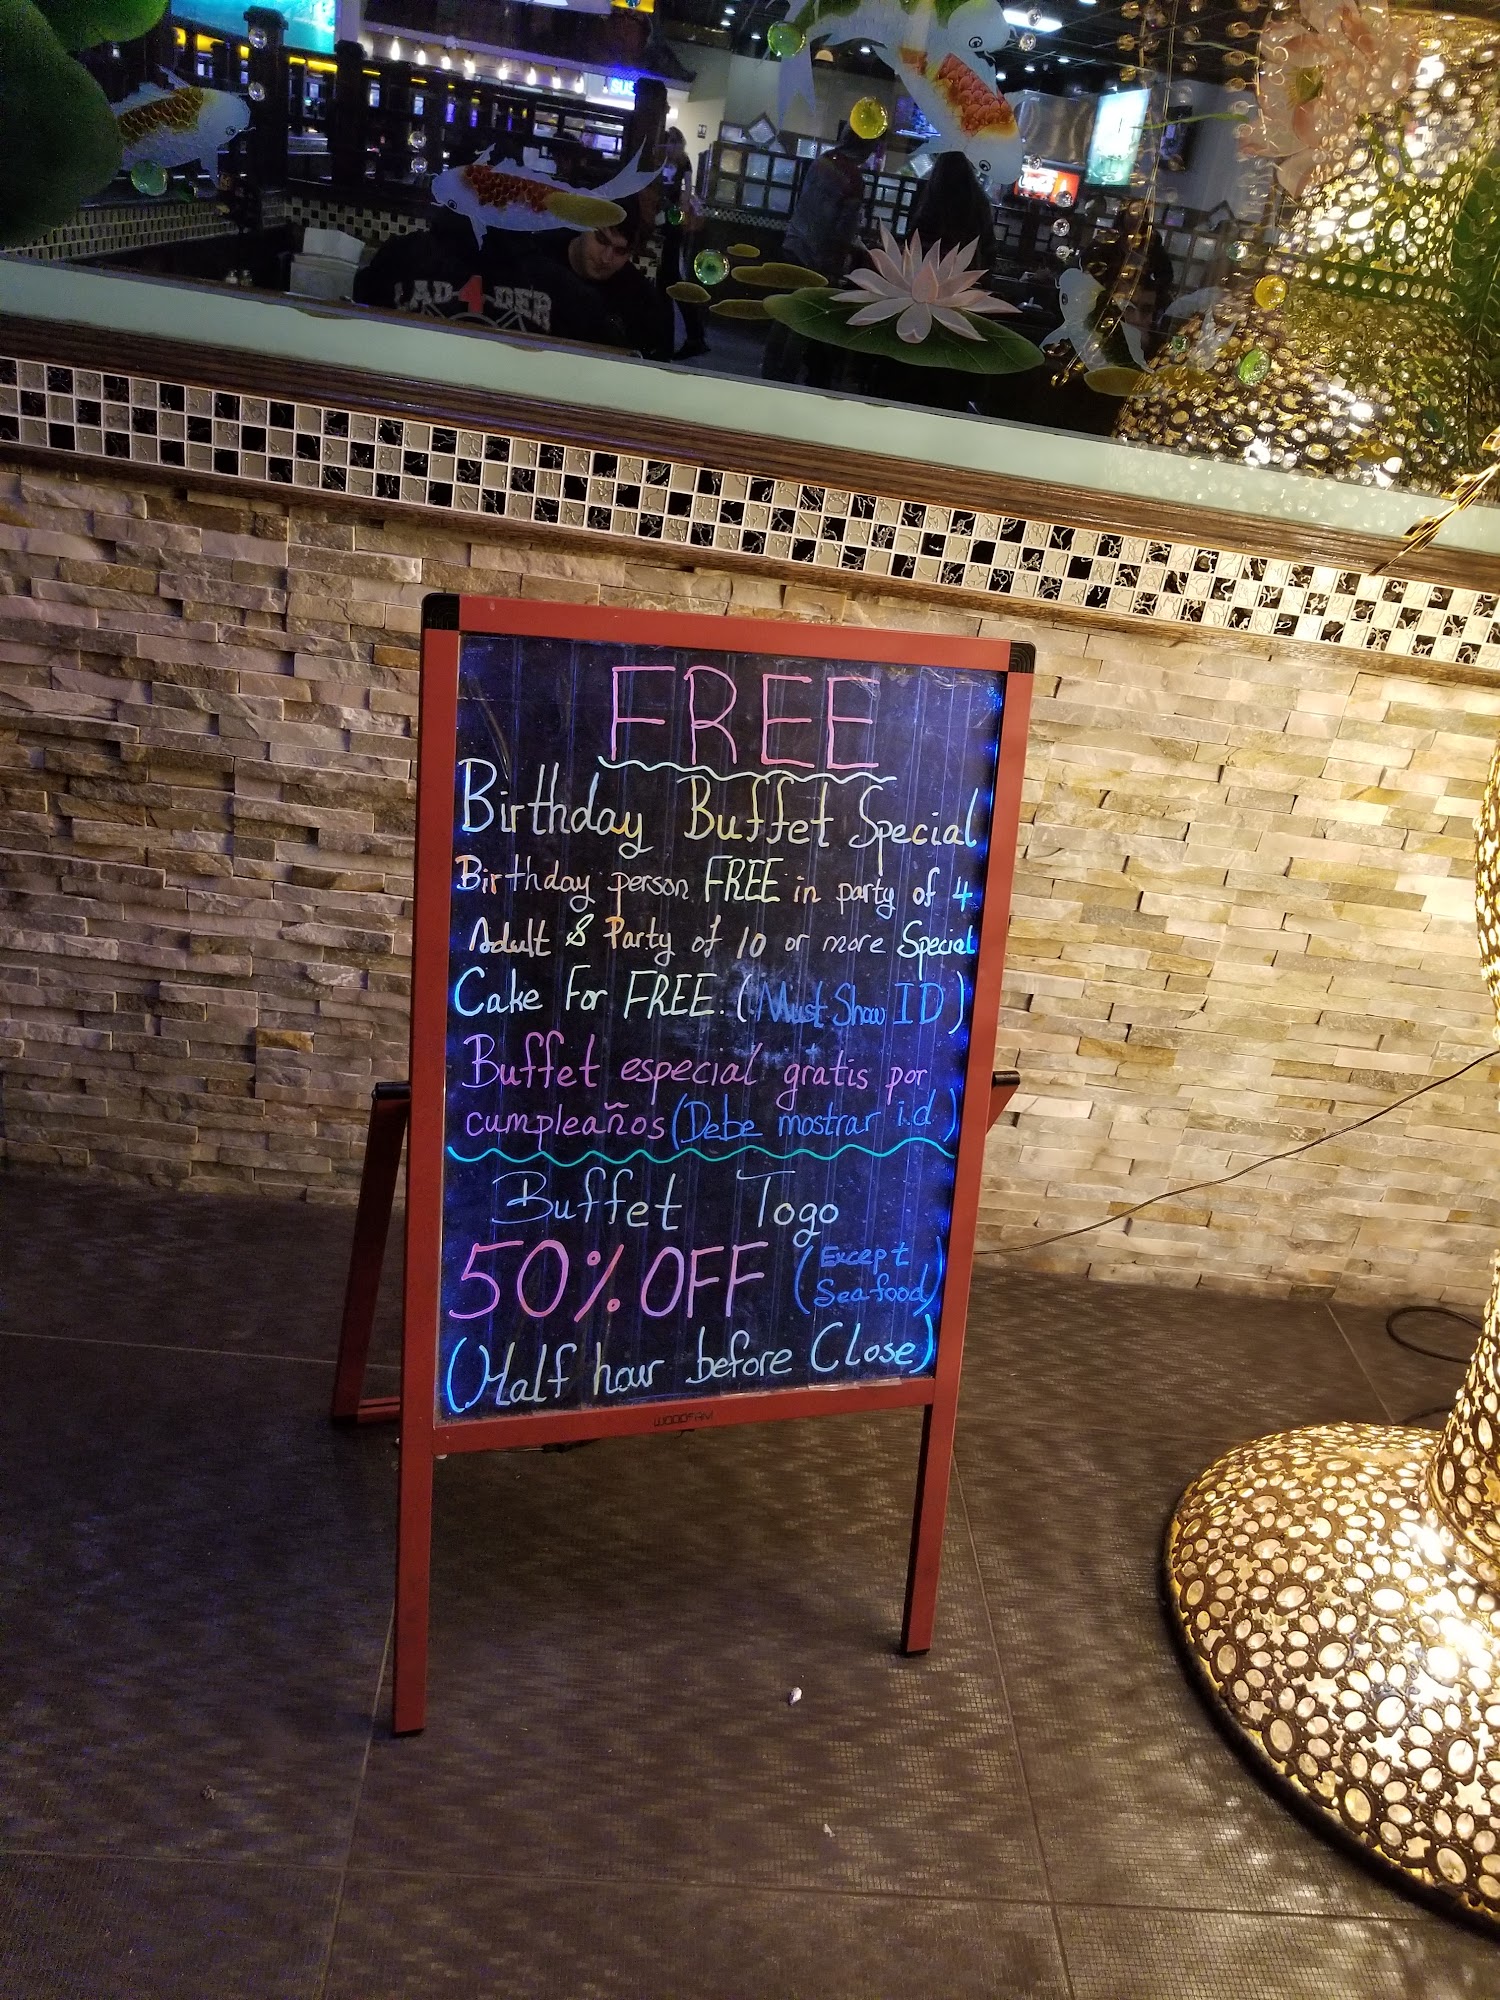 SUS
LAD4DER
FREE
Birthday Buffet Special
Birthday person FREE in party of 4
Adult & Party of 10 or more Special
Cake For FREE. (Must Show ID)
Buffet especial gratis por
cumpleaños (Debe mostrar i.d)
Buffet Togo
50% OFF (Except
Seafood)
(Half hour before Close)